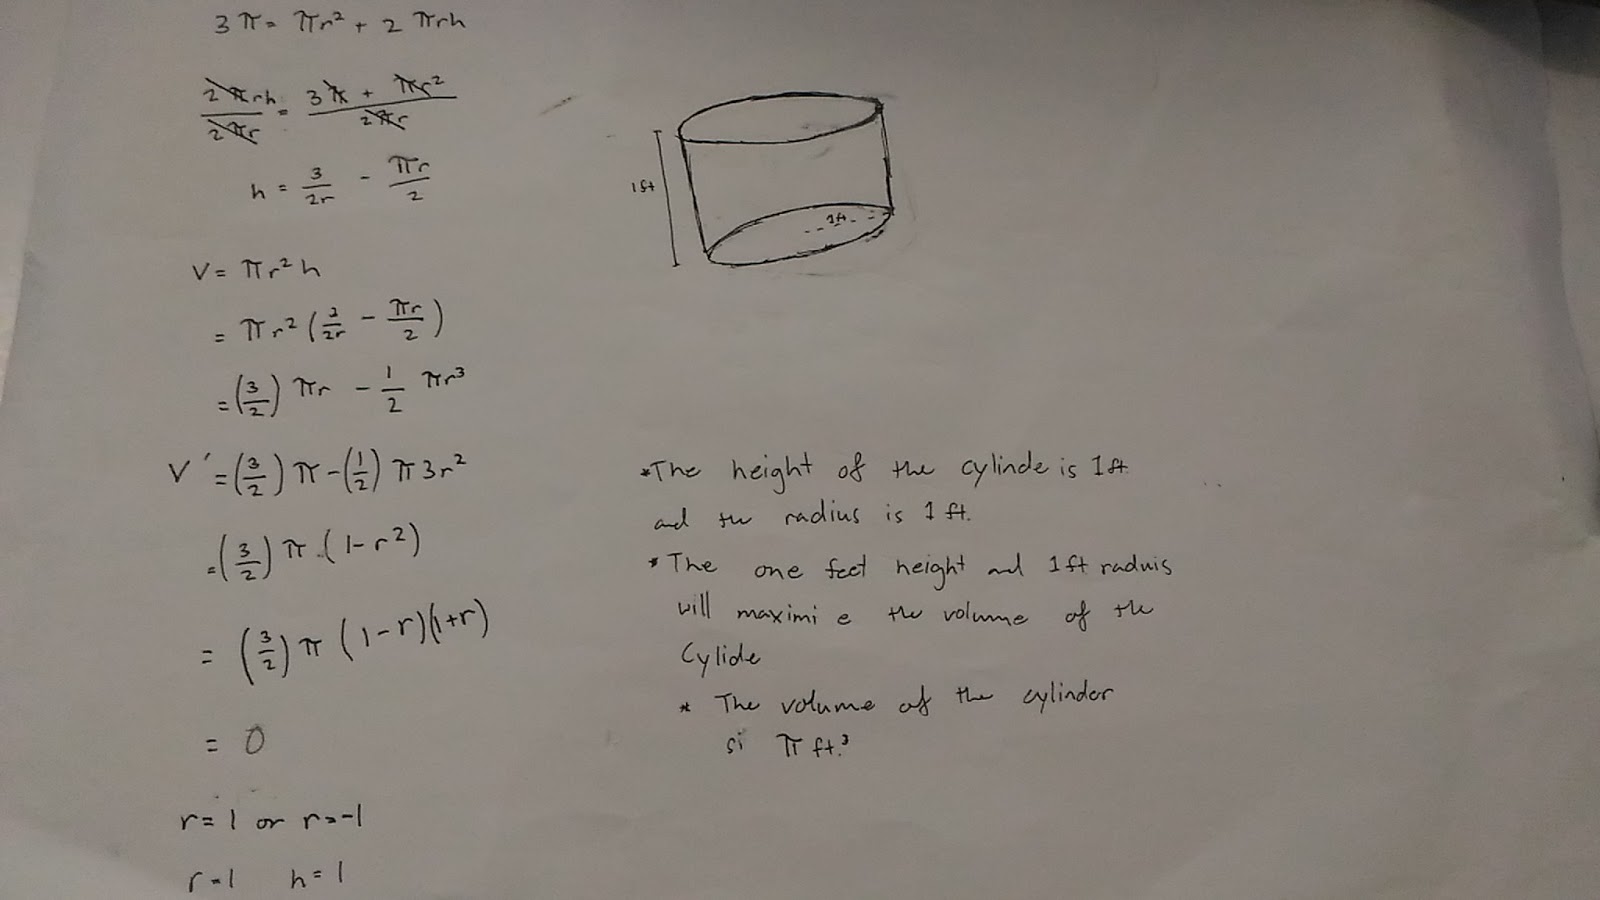 3π = πr² + 2πrh
2πrh/2πr = 3π + πr²/2πr
h = 3/2r - πr/2
V = πr²h
= πr²(3/2r - πr/2)
= (3/2) πr - 1/2 πr³
V' = (3/2) π - (1/2) π3r²
= (3/2) π (1-r²)
= (3/2) π (1-r)(1+r)
= 0
r = 1 or r = -1
r = 1 h = 1
1ft
1ft
*The height of the cylinde is 1ft.
and the radius is 1 ft.
* The one feet height and 1ft raduis
will maximi e the volume of the
Cylide
* The volume of the cylindor
si π ft.³